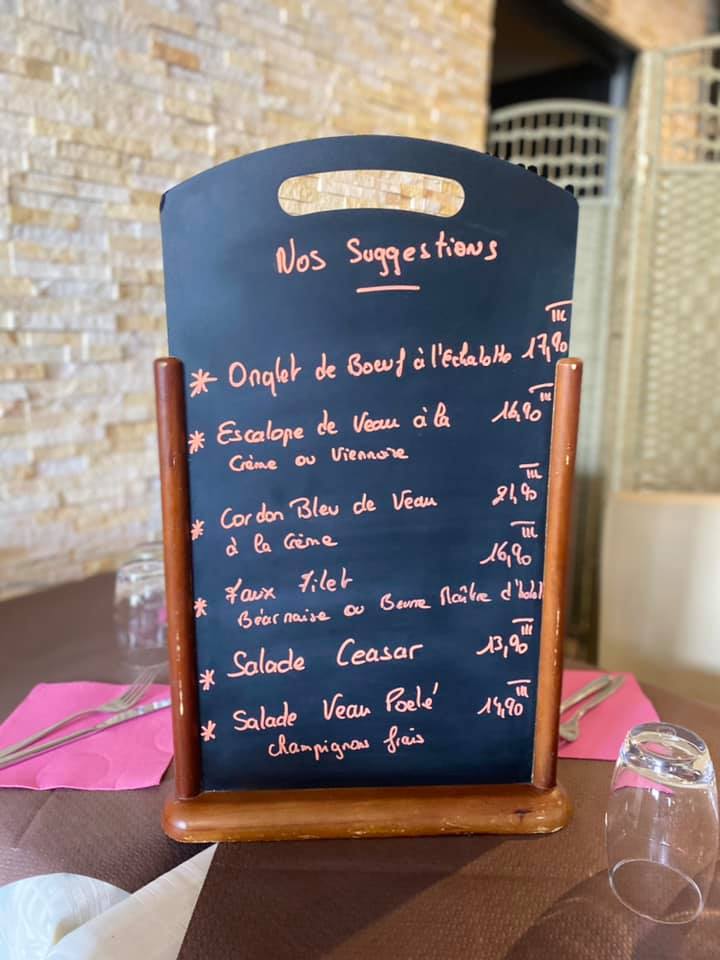 Nos Suggestions
* Onglet de Boeuf à l'Echalotte 17,90
* Escalope de Veau à la 16,90
Crème ou Viennoise
* Cordon Bleu de Veau 21,90
à la Crème
* Faux Filet 16,90
Béarnaise ou Beurre Maître d'hotel
* Salade Ceasar 13,90
* Salade Veau Poelé 14,90
champignons frais